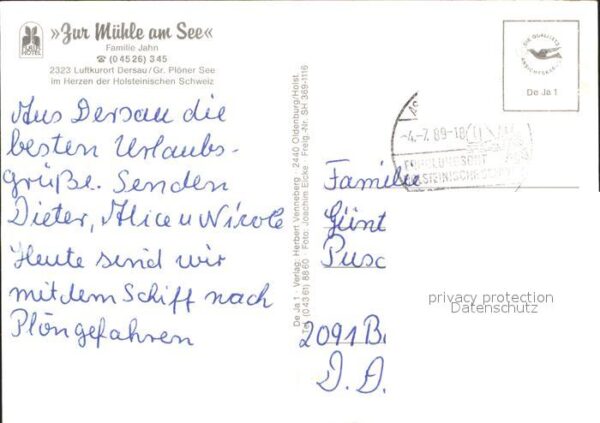 »Zur Mühle am See«
Familie Jahn
☎ (0 45 26) 3 45
2323 Luftkurort Dersau/Gr. Plöner See
im Herzen der Holsteinischen Schweiz
Aus Dersau die
besten Urlaubs-
grüße. Senden
Dieter, Alice u Nicole
Heute sind wir
mit dem Schiff nach
Plön gefahren
De Ja 1 · Verlag: Herbert Venneberg · 2440 Oldenburg/Holst.
Tel. (0 43 61) 88 60 · Foto: Joachim Epke · Freig.-Nr. SH 369-1116
DIE QUALITÄTS
ANSICHTSKARTE
De Ja 1
-4.-7.89-18
Familie
Günt
Pusc
2091 B.
privacy protection
Datenschutz